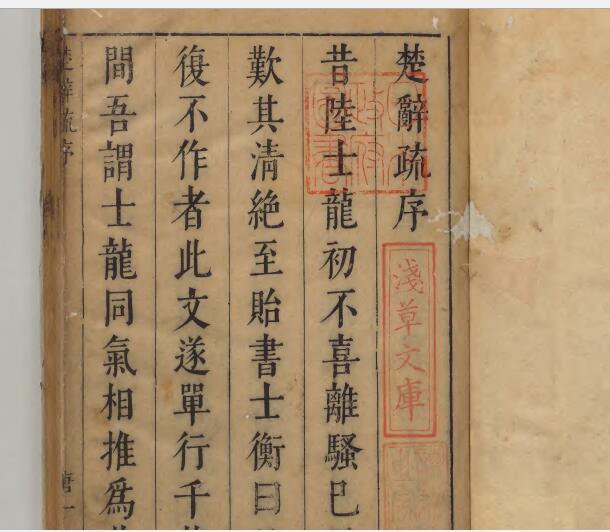 楚辭疏序
昔陸士龍初不喜離騷已
歎其清絶至貽書士衡曰
復不作者此文遂單行千
間吾謂士龍同氣相推爲
楚辭疏序
唐一
淺草文庫